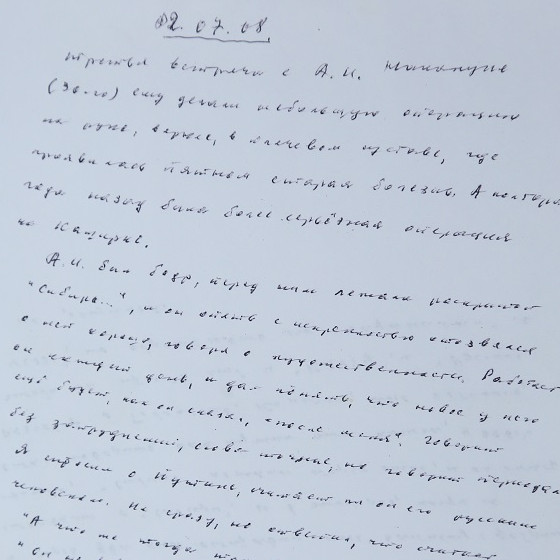 02.07.08.
Третья встреча с А.И.
(30-го) ему делали небольшую операцию
на руке, вернее, в плечевом суставе, где
проявилась пятном старая болезнь. А полтора
года назад была более серьёзная операция
на Каширке.
А.И. был бодр, перед ним лежала раскрытой
"Сибирь...", и он опять с искренностью отозвался
о ней хорошо, говоря о художественности. Работает
он каждый день, и дал понять, что новое у него
ещё будет, как он сказал, "после меня". Говорит
без затруднений, слово точное, но говорит
Я спросил о Путине, считает ли он его русским
человеком. Не сразу, но ответил, что считает
"А что же тогда
"Он